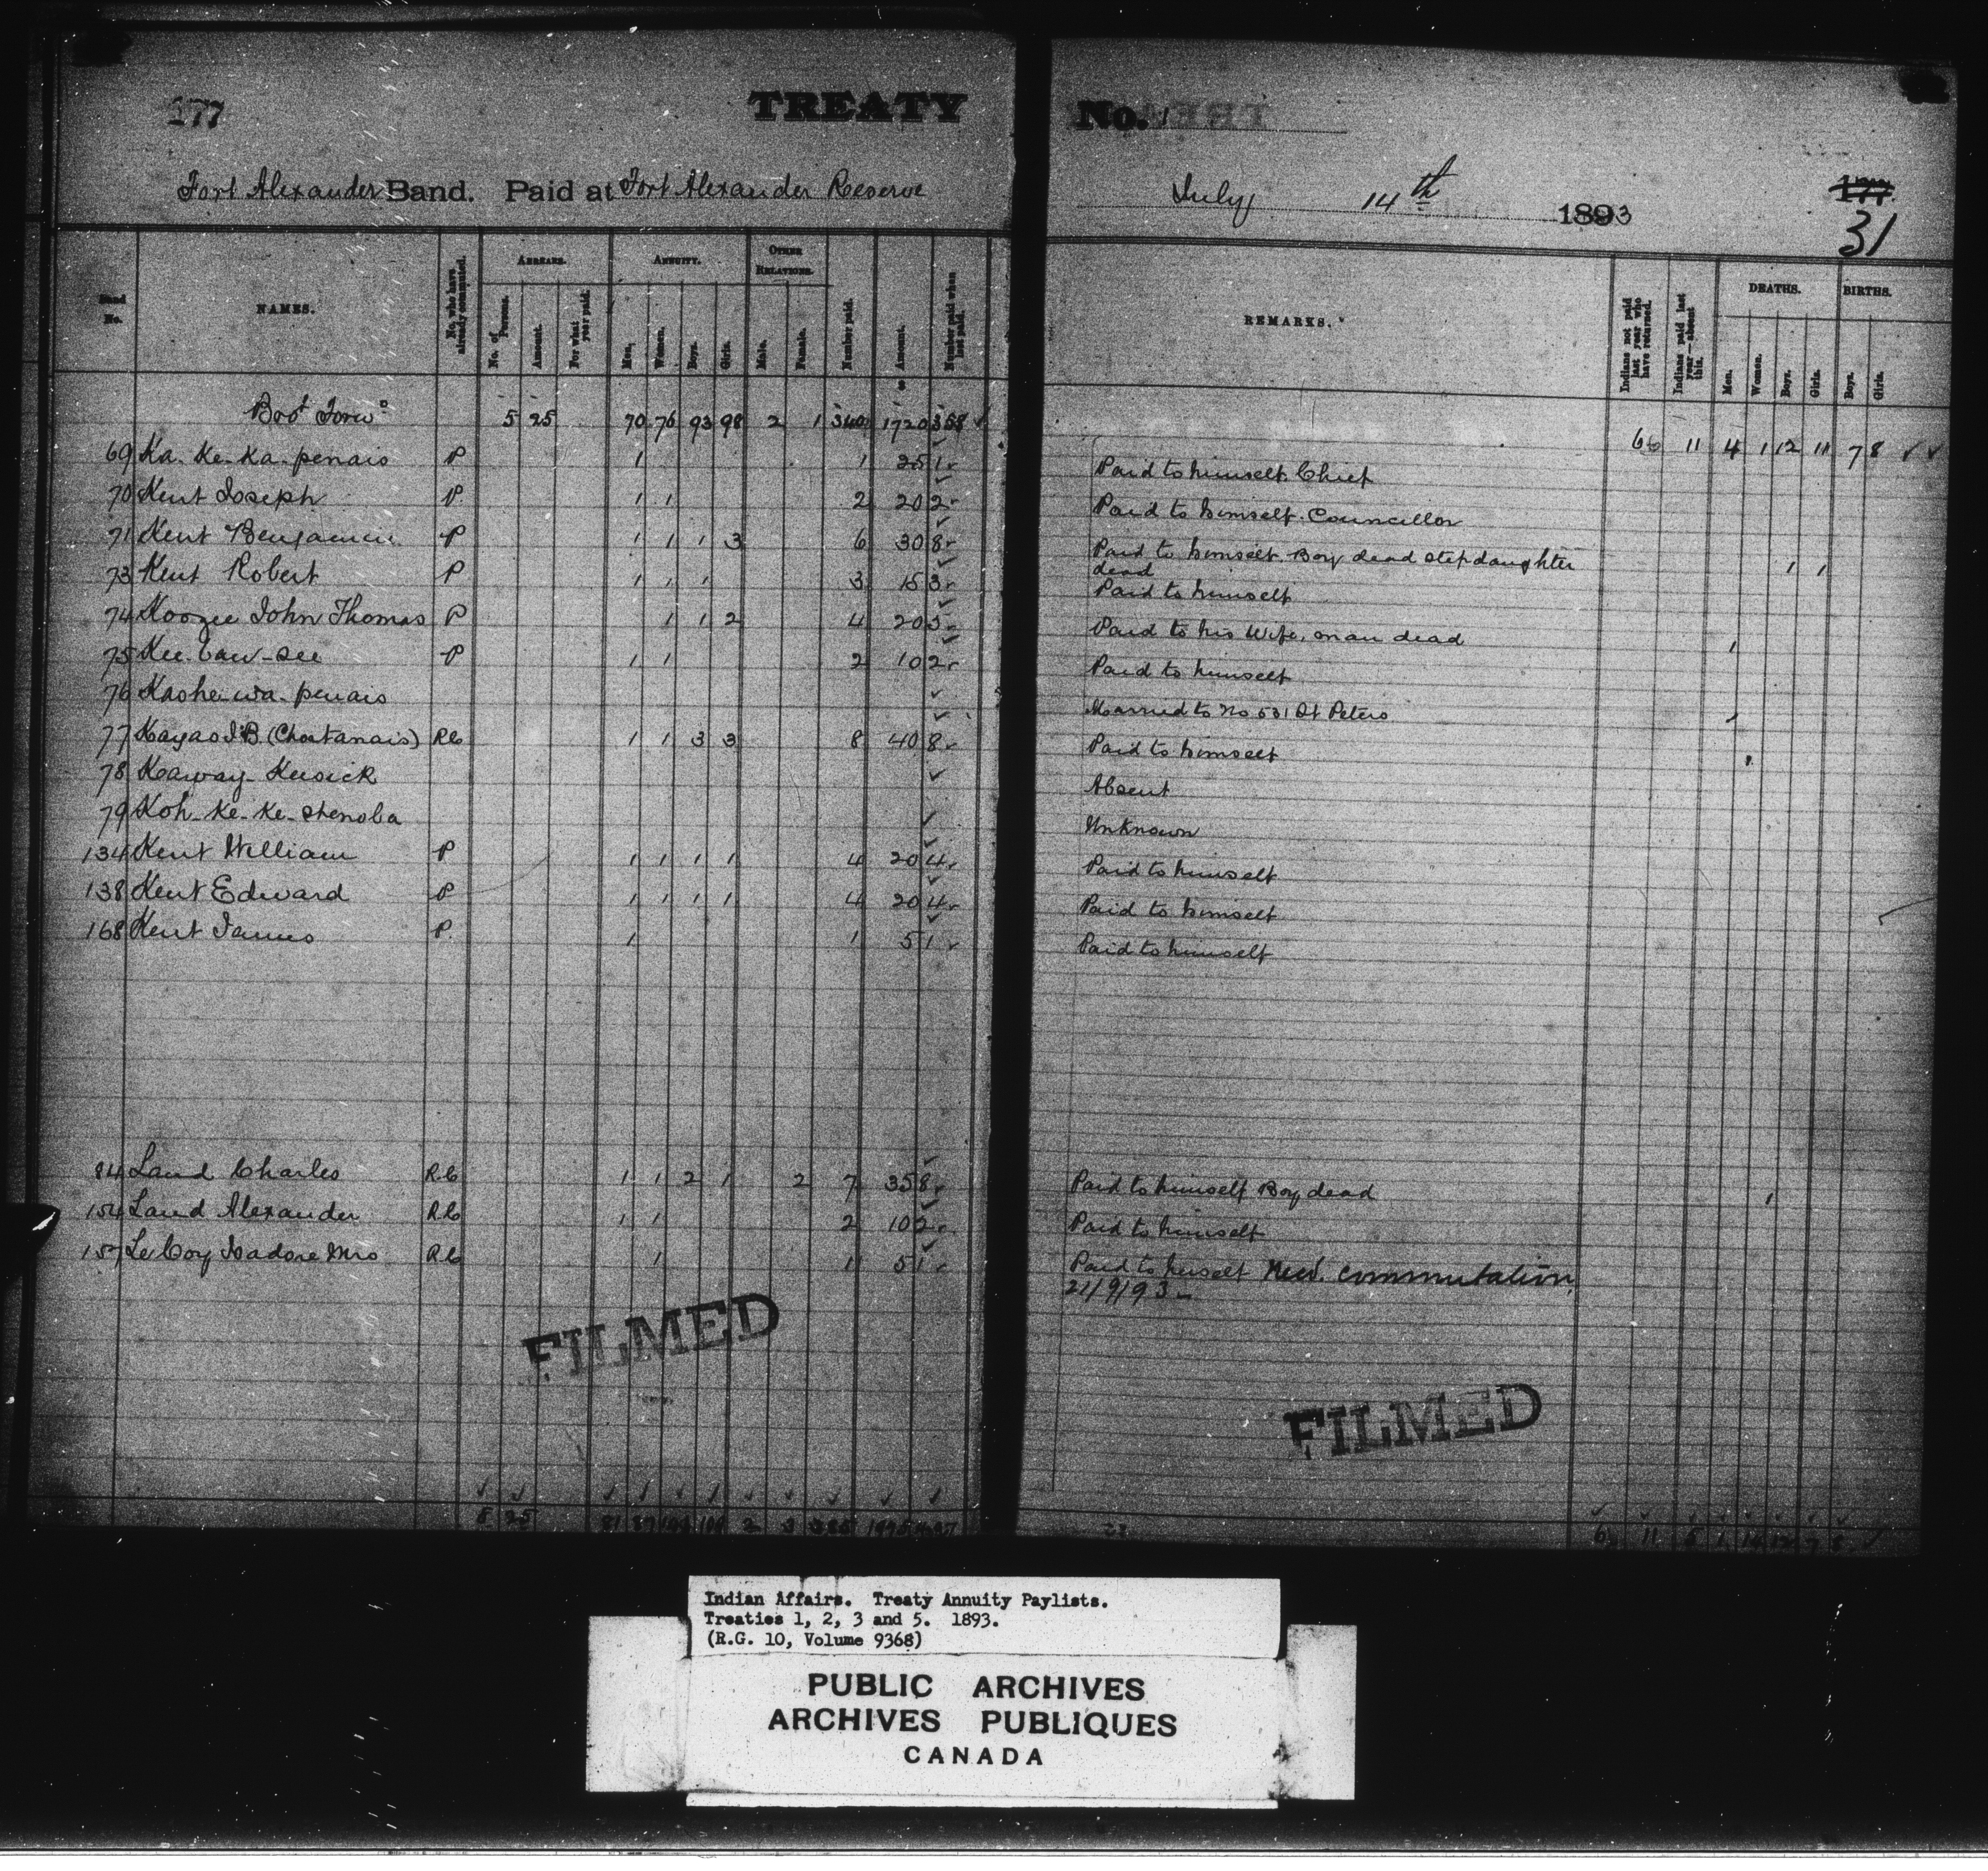 177
TREATY
No. 1
Fort Alexander Band. Paid at Fort Alexander Reserve
July 14th 1893
177
31
Band No.
NAMES.
No. who have already commuted.
ARREARS.
No. of Persons.
Amount.
For what year paid.
ANNUITY.
Men.
Women.
Boys.
Girls.
OTHER RELATIONS.
Male.
Female.
Number paid.
$ Amount.
Number paid when last paid.
REMARKS.
Indians not paid last year who have returned.
Indians paid last year—absent this.
DEATHS.
Men.
Women.
Boys.
Girls.
BIRTHS.
Boys.
Girls.
Bro't Forwd 5 25 70 76 93 98 2 1 340 1720 358 ✓ 6 11 4 1 12 11 7 8 ✓ ✓
69 Ka-Ke-Ka-penais P 1 1 25 1 Paid to himself. Chief
70 Kent Joseph P 1 1 2 20 2 Paid to himself. Councillor
71 Kent Benjamin P 1 1 1 3 6 30 8 Paid to himself. Boy dead stepdaughter
dead 1 1
73 Kent Robert P 1 1 1 3 15 3 Paid to himself
74 Koozee John Thomas P 1 1 2 4 20 5 Paid to his Wife, man dead 1
75 Kee-Caw-See P 1 1 2 10 2 Paid to himself
76 Kashe-wa-penais ✓ Married to No 531 St Peters
77 Kayas J.B. (Chartanais) RC 1 1 3 3 8 40 8 Paid to himself
78 Kaway-Keesick ✓ Absent
79 Koh-Ke-Ke-Shenoba ✓ Unknown
134 Kent William P 1 1 1 1 4 20 4 Paid to himself
138 Kent Edward P 1 1 1 1 4 20 4 Paid to himself
168 Kent James P. 1 1 5 1 Paid to himself
84 Land Charles R.C 1 1 2 1 2 7 35 8 Paid to himself Boy dead 1
154 Land Alexander R.C 1 1 2 10 2 Paid to himself
157 LeCoy Isadore Mrs R.C 1 1 5 1 Paid to herself Recd. commutation
21/9/93
FILMED
FILMED
5 25 81 87 2 3 385 1975 6 11 5 1 14 12 7 8 ✓
Indian Affairs. Treaty Annuity Paylists.
Treaties 1, 2, 3 and 5. 1893.
(R.G. 10, Volume 9368)
PUBLIC ARCHIVES
ARCHIVES PUBLIQUES
CANADA